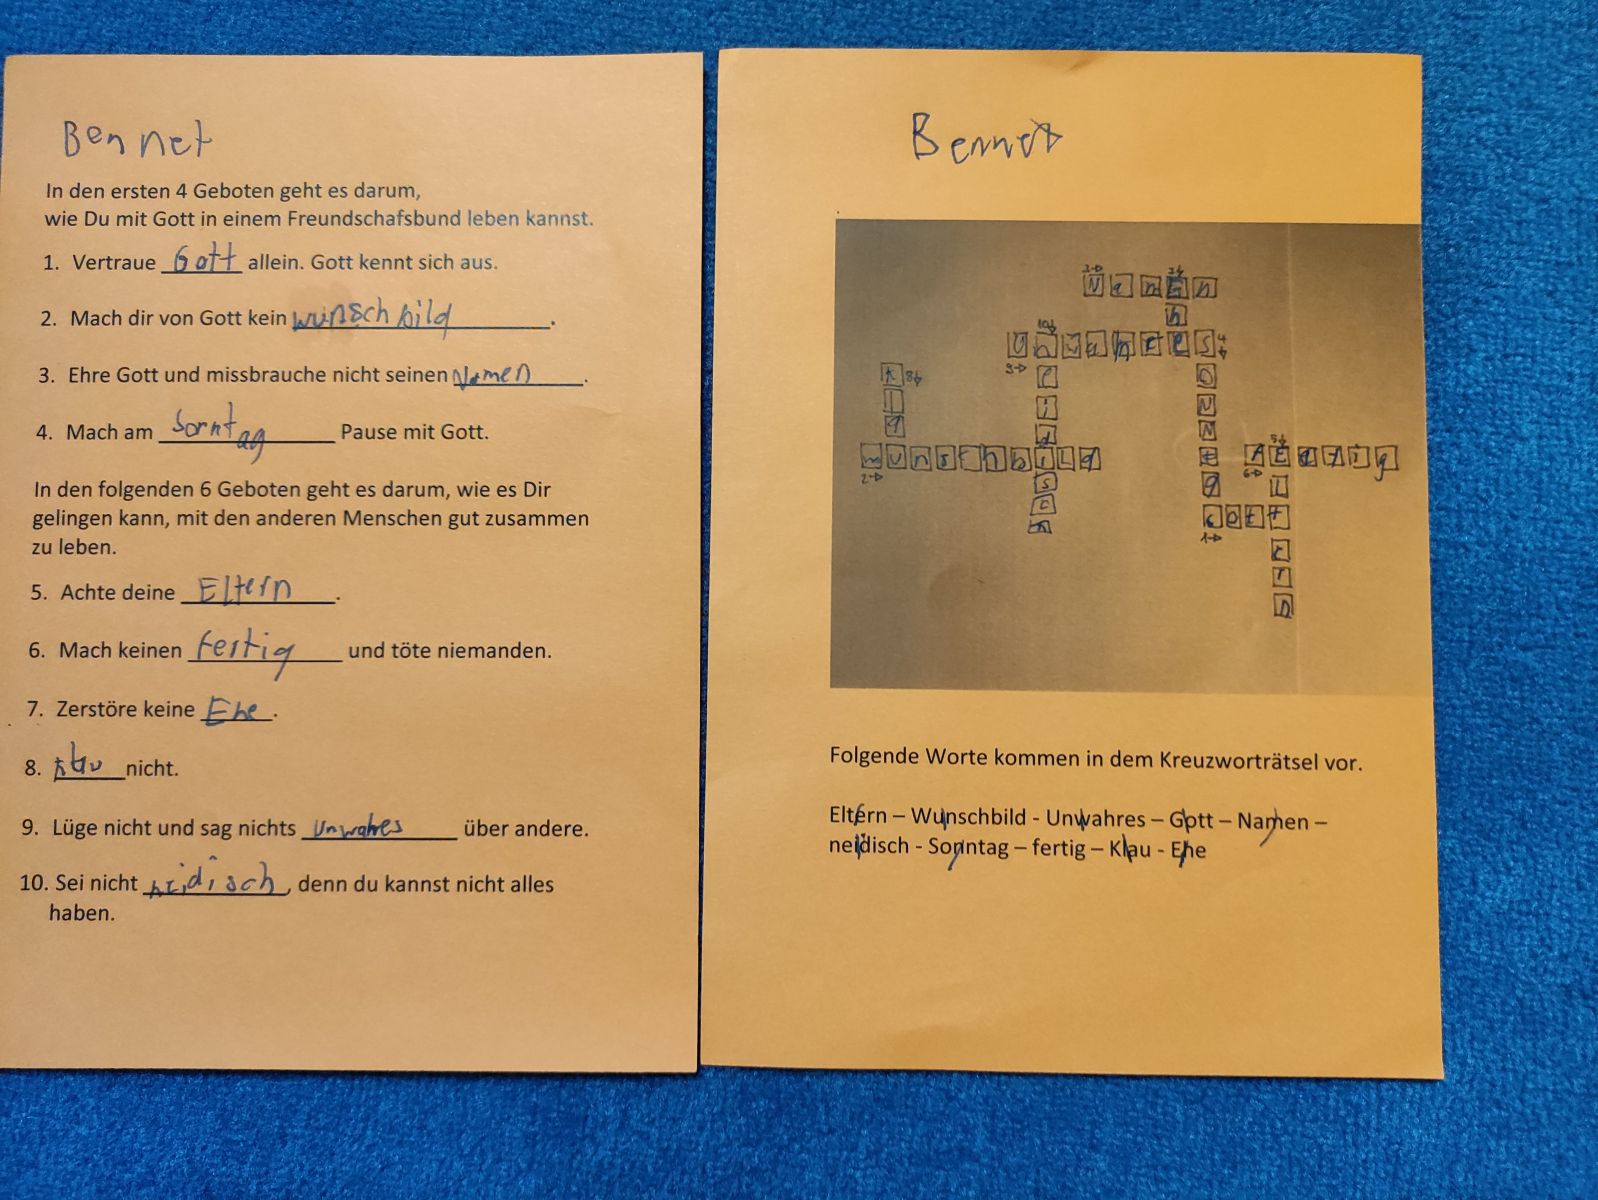 Bennet
In den ersten 4 Geboten geht es darum,
wie Du mit Gott in einem Freundschafsbund leben kannst.
1. Vertraue Gott allein. Gott kennt sich aus.
2. Mach dir von Gott kein wunschbild.
3. Ehre Gott und missbrauche nicht seinen Namen.
4. Mach am Sonntag Pause mit Gott.
In den folgenden 6 Geboten geht es darum, wie es Dir
gelingen kann, mit den anderen Menschen gut zusammen
zu leben.
5. Achte deine Eltern.
6. Mach keinen fertig und töte niemanden.
7. Zerstöre keine Ehe.
8. klau nicht.
9. Lüge nicht und sag nichts unwahres über andere.
10. Sei nicht neidisch, denn du kannst nicht alles
haben.
Bennet
Namen
Unwahres
wunschbild
fertig
Gott
Folgende Worte kommen in dem Kreuzworträtsel vor.
Eltern – Wunschbild - Unwahres – Gott – Namen –
neidisch - Sonntag – fertig – Klau - Ehe